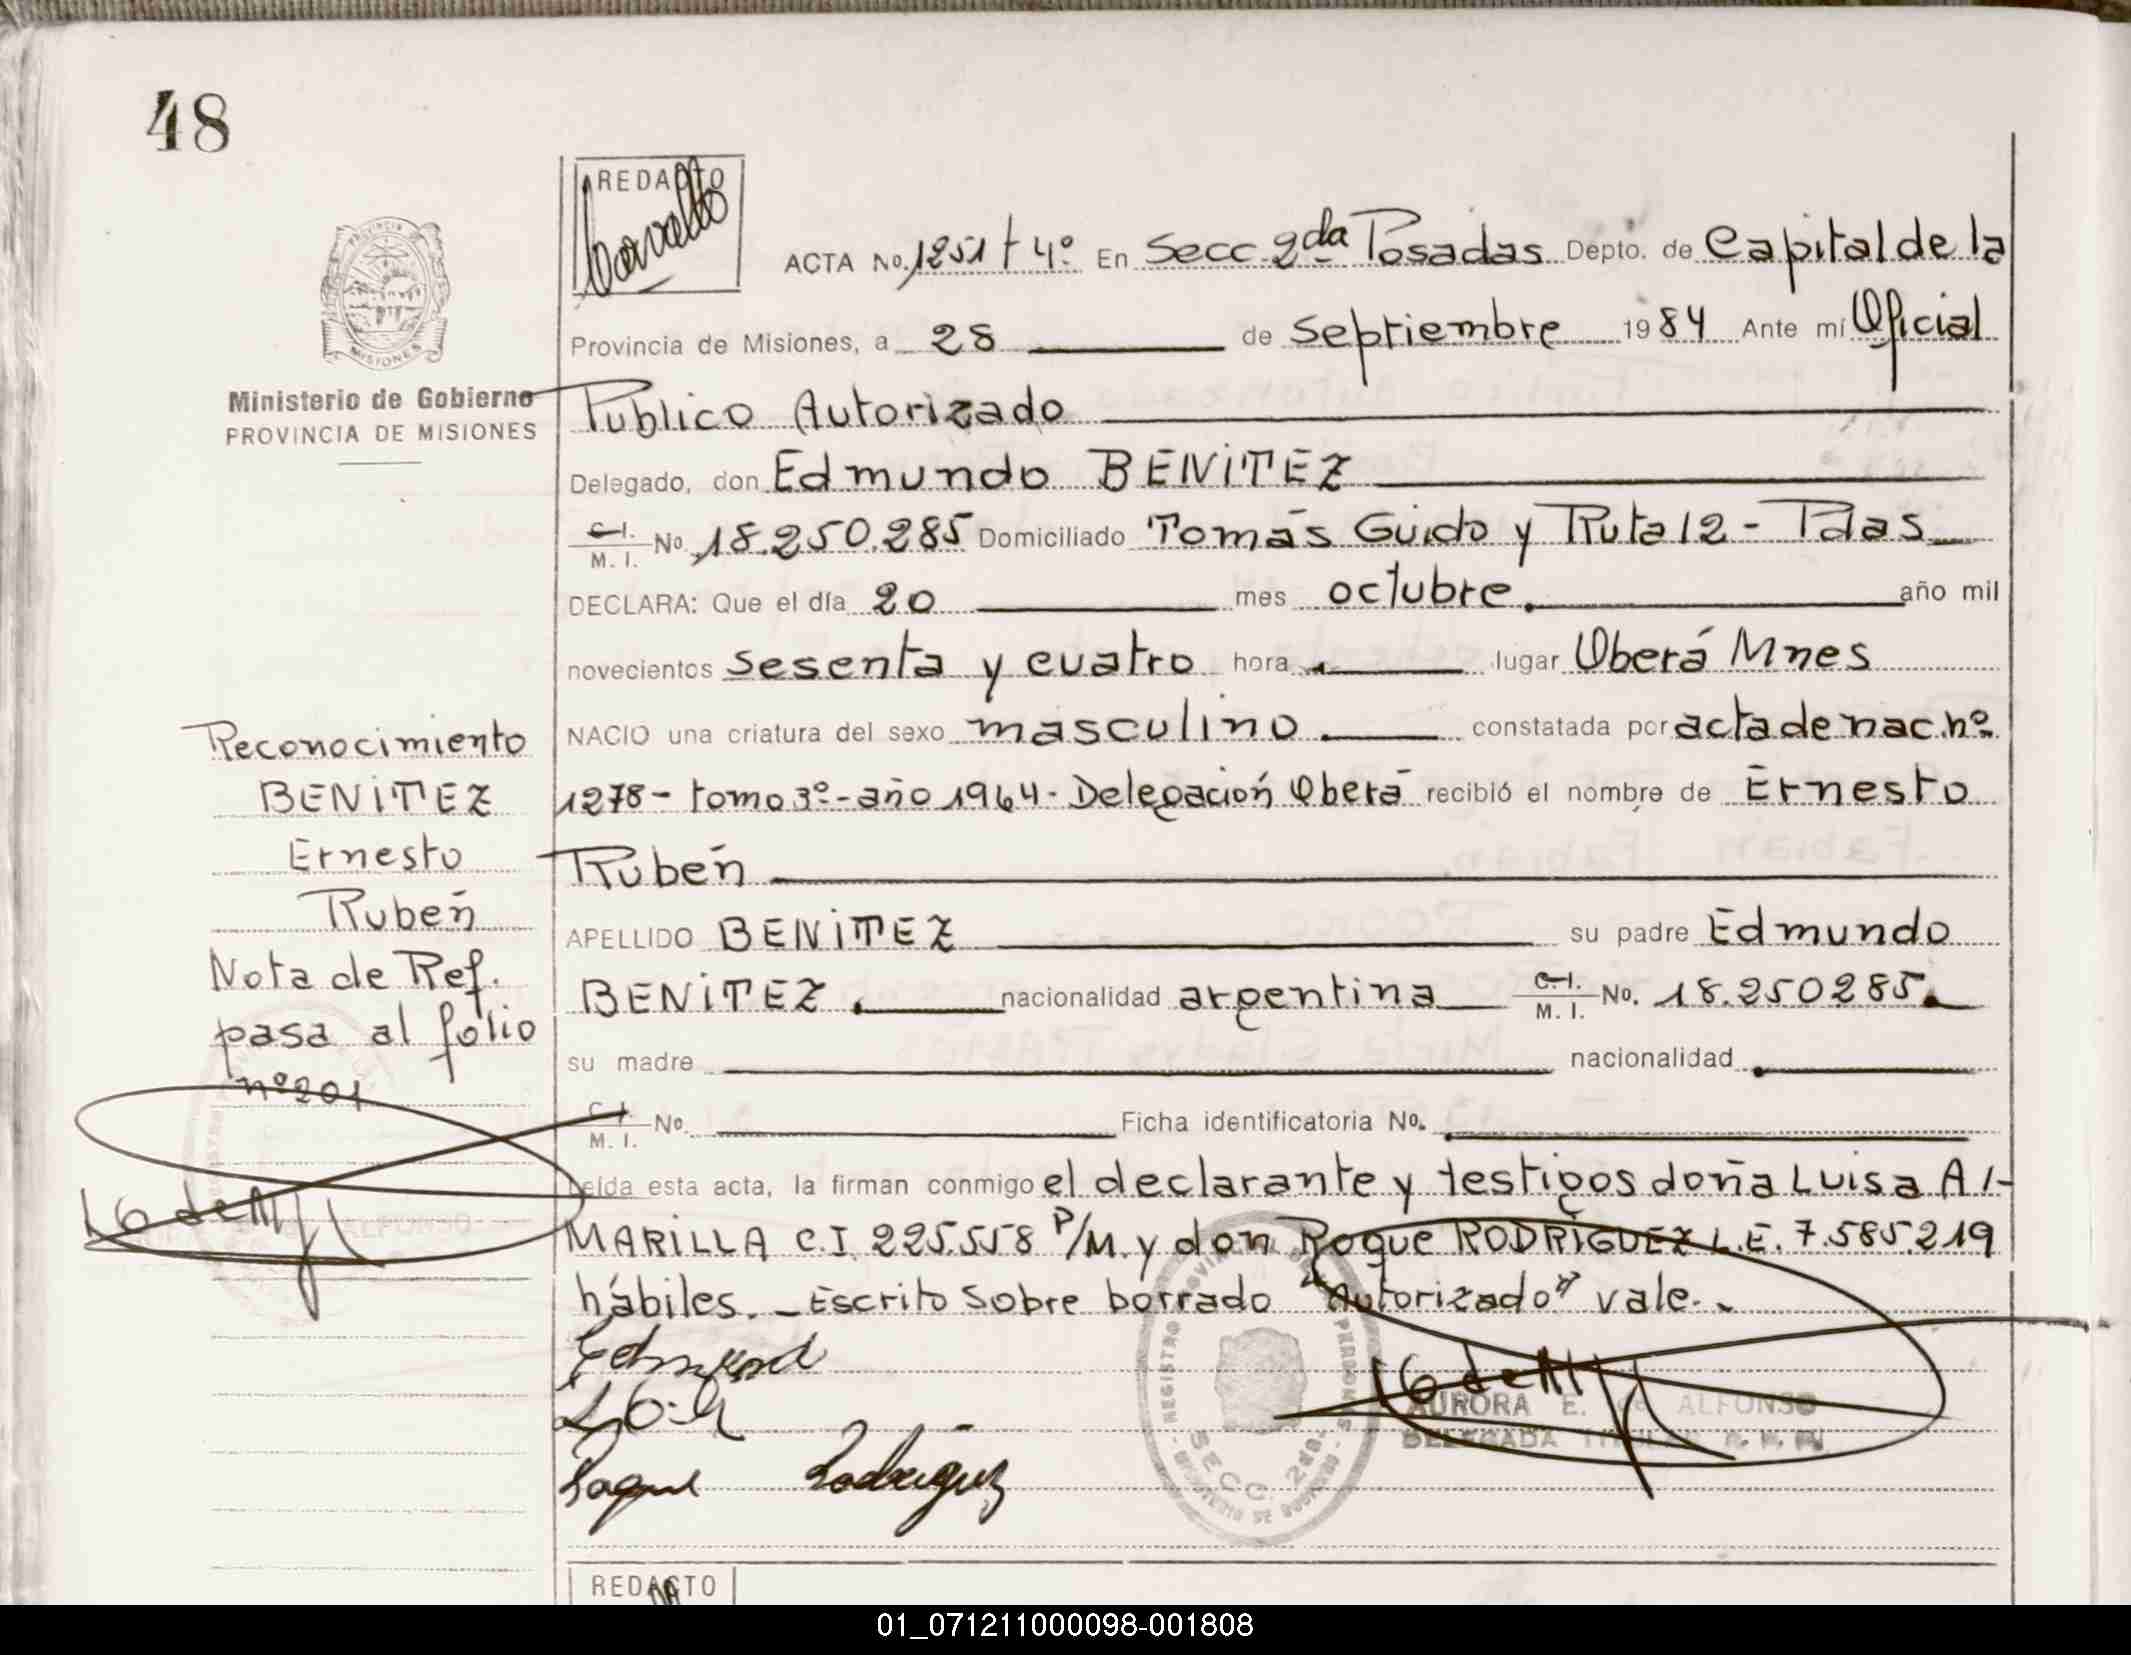 48
REDACTO
ACTA No. 1251 t 4º En Secc 2da Posadas Depto. de Capital de la
PROVINCIA DE
MISIONES
Provincia de Misiones, a 28 de Septiembre 1984 Ante mí Oficial
Ministerio de Gobierno
PROVINCIA DE MISIONES
Publico Autorizado
Delegado, don Edmundo BENITEZ
C.I. M. I. No. 18.250.285 Domiciliado Tomás Guido y Ruta 12 - Pdas
DECLARA: Que el día 20 mes octubre. año mil
novecientos sesenta y cuatro hora lugar Oberá Mnes
NACIO una criatura del sexo masculino constatada por acta de nac. nº
1278 - tomo 3º - año 1964 - Delegación Oberá recibió el nombre de Ernesto
Rubén
APELLIDO BENITEZ su padre Edmundo
BENITEZ. nacionalidad argentina C.I. M. I. No. 18.250285.
su madre nacionalidad
C.I. M. I. No. Ficha identificatoria No.
Leída esta acta, la firman conmigo el declarante y testigos doña Luisa A l-
MARILLA C.I. 225.558 P/M. y don Roque RODRÍGUEZ L.E. 7.585.219
hábiles. - Escrito sobre borrado "Autorizado" vale. -
Reconocimiento
BENITEZ
Ernesto
Rubén
Nota de Ref.
pasa al folio
nº 201
Roque Rodríguez
AURORA E. de ALFONSO
DELEGADA TITULAR
SECC. 2da.
REDACTO
01_071211000098-001808